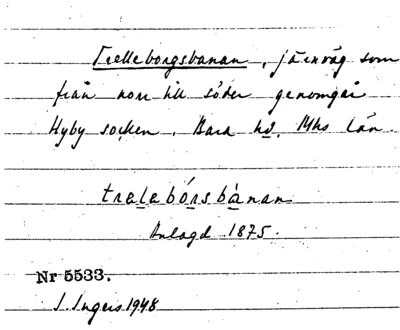 Trelleborgsbanan, järnväg som
från norr till söder genomgår
Hyby socken, Bara hd, Mhs län.
trælebórsbànan
Anlagd 1875.
Nr 5533.
I. Ingers 1948